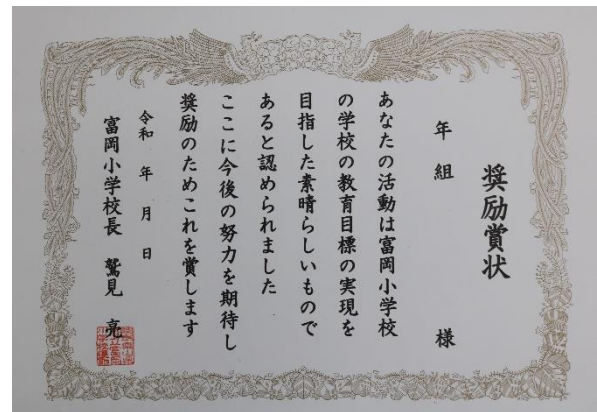 奨励賞状
年 組 様
あなたの活動は富岡小学校
の学校の教育目標の実現を
目指した素晴らしいもので
あると認められました
ここに今後の努力を期待し
奨励のためこれを賞します
令和 年 月 日
富岡小学校長 鷲見 亮